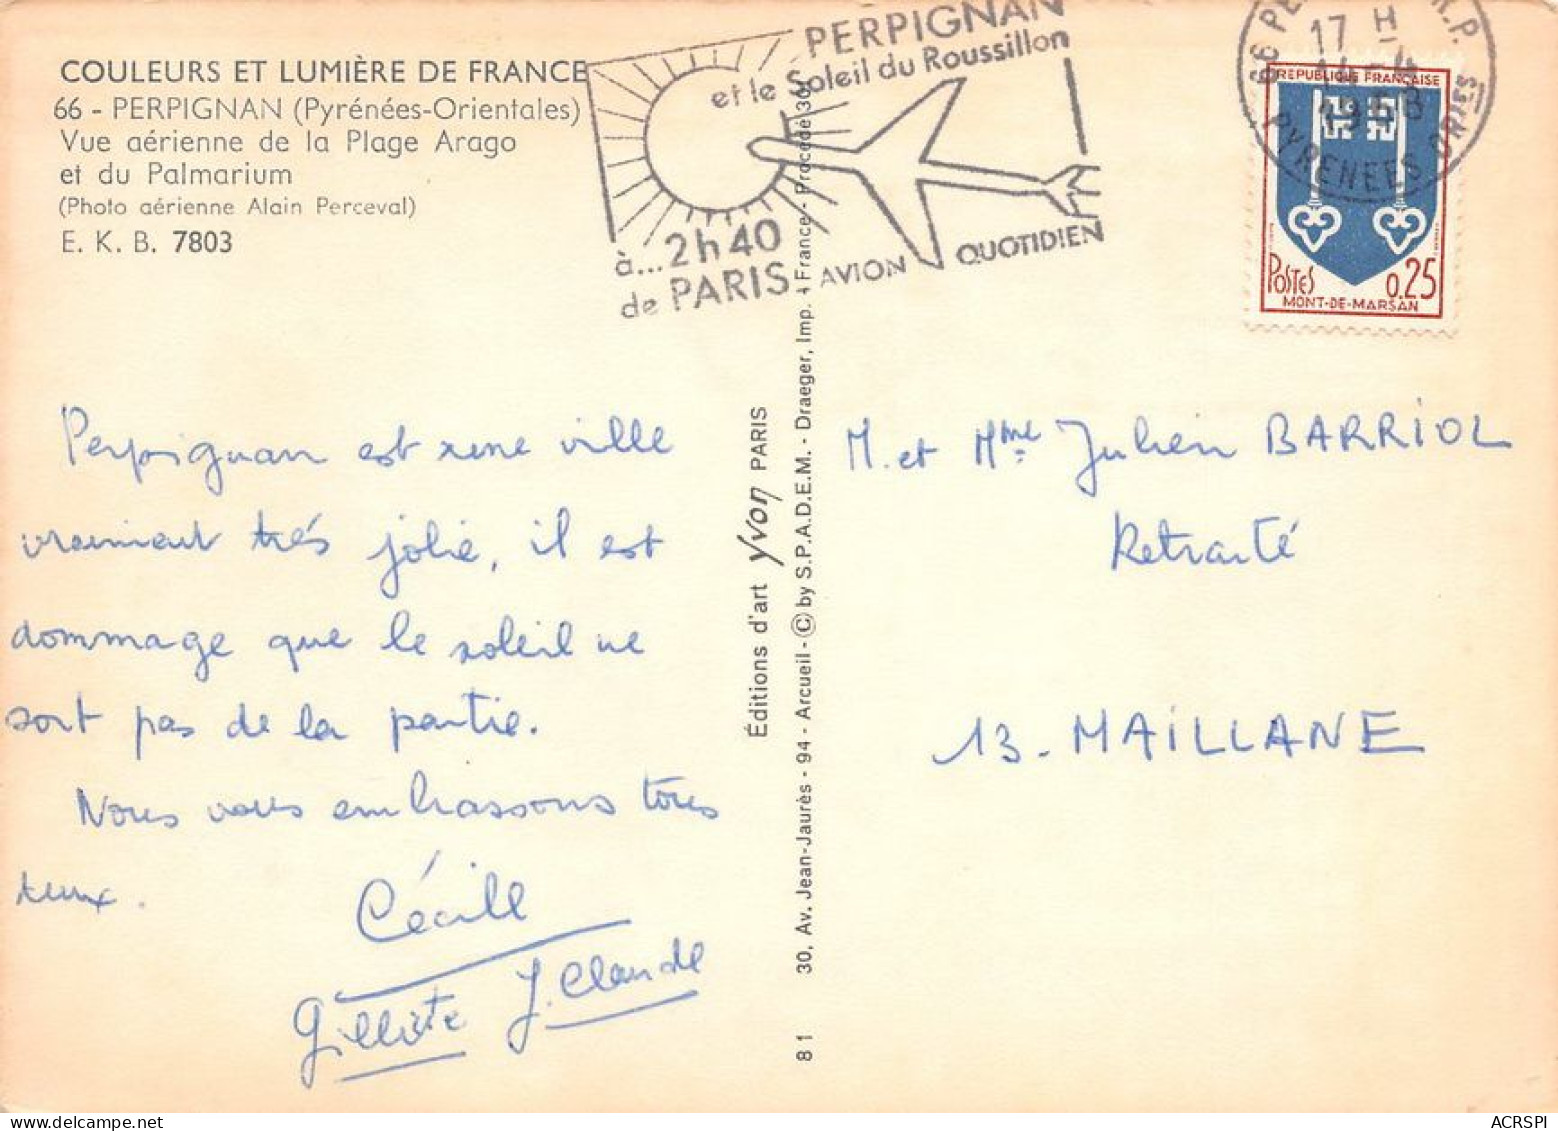 COULEURS ET LUMIÈRE DE FRANCE
66 - PERPIGNAN (Pyrénées-Orientales)
Vue aérienne de la Plage Arago
et du Palmarium
(Photo aérienne Alain Perceval)
E. K. B. 7803
PERPIGNAN
et le Soleil du Roussillon
à... 2h40
de PARIS AVION QUOTIDIEN
17 H
PYRENEES ORIES
REPUBLIQUE FRANÇAISE
POSTES 0,25
MONT-DE-MARSAN
Perpignan est une ville
vraiment trés jolie, il est
dommage que le soleil ne
soit pas de la partie.
Nous vous embrassons tous
Cécile
J. Claude
Éditions d'art yvon PARIS
81 30, Av. Jean-Jaurès - 94 - Arcueil - © by S.P.A.D.E.M. - Draeger, Imp. - France - Procédé 301
M. et Mme Julien BARRIOL
Retraité
13 - MAILLANE
ACRSPI